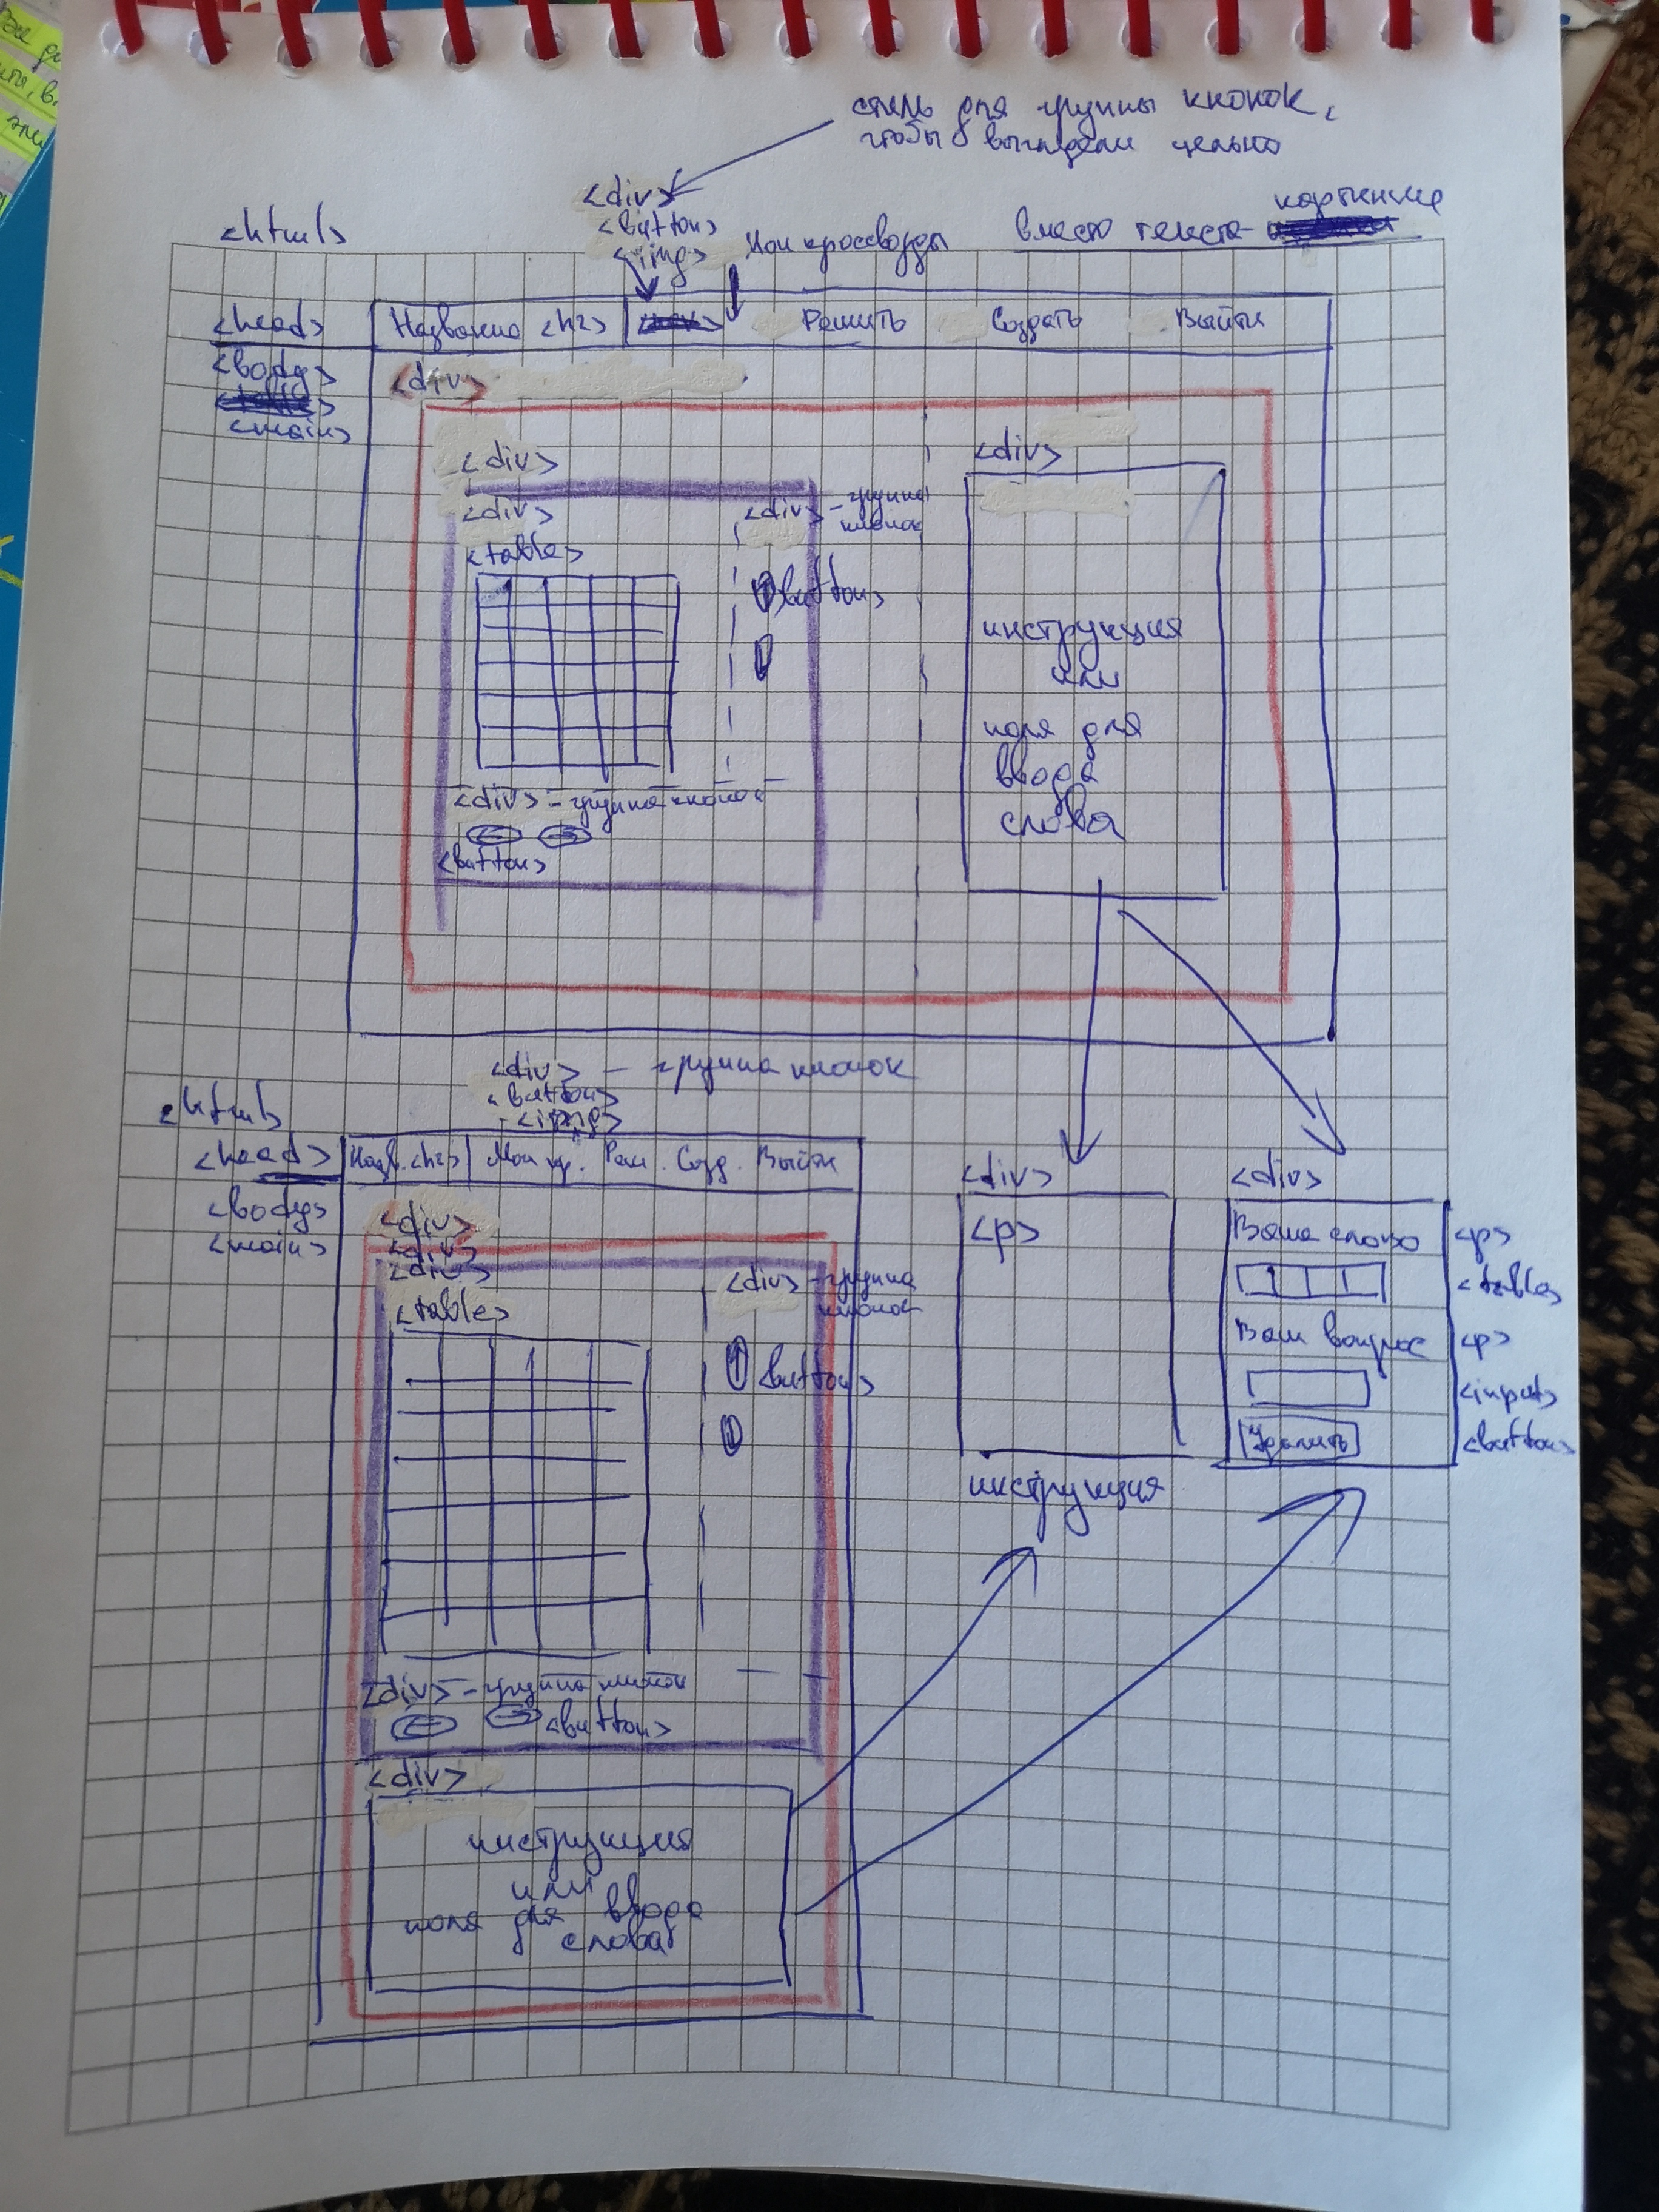 стиль для группы кнопок,
чтобы выглядели цельно
<div>
<button>
<img>
<html>
Мои кроссворды
вместо текста - картинки
<head>
Название <h2>
Решить
Создать
Выйти
<body>
<main>
<div>
<div>
<div>
<table>
<div> - группа
кнопок
<button>
<div> - группа кнопок
<button>
<div>
инструкция
или
поля для
ввода
слова
<div> - группа кнопок
<button>
<img>
<html>
<head>
Назв. <h2>
Мои кр. Реш. Созд. Выйти
<body>
<main>
<div>
<div>
<div>
<table>
<div> - группа
кнопок
<button>
<div> - группа кнопок
<button>
<div>
инструкция
или
поля для ввода
слова
<div>
<p>
инструкция
<div>
Ваше слово <p>
<table>
Ваш вопрос <p>
<input>
Удалить <button>